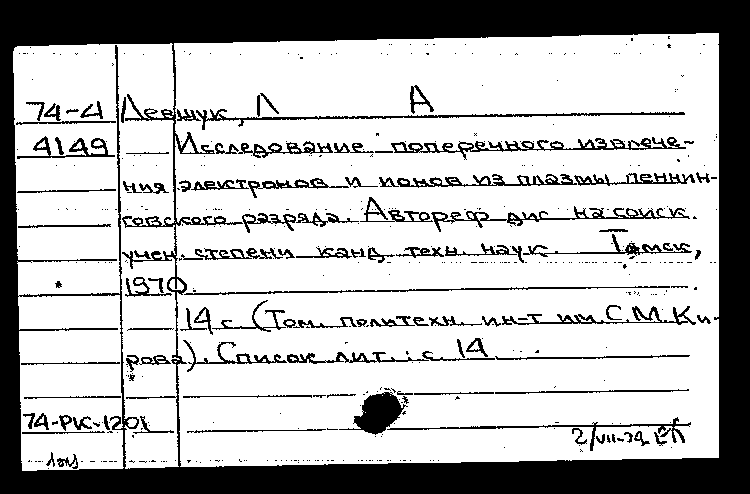 74-4 Левшук, Л А
4149 Исследование поперечного извлече-
ния электронов и ионов из плазмы пеннин-
говского разряда. Автореф дис на соиск.
учен. степени канд техн. наук. Томск,
1970.
14 с (Том. политехн. ин-т им. С.М. Ки-
рова). Список лит.: с. 14
74-РК-1201
2/VII-74